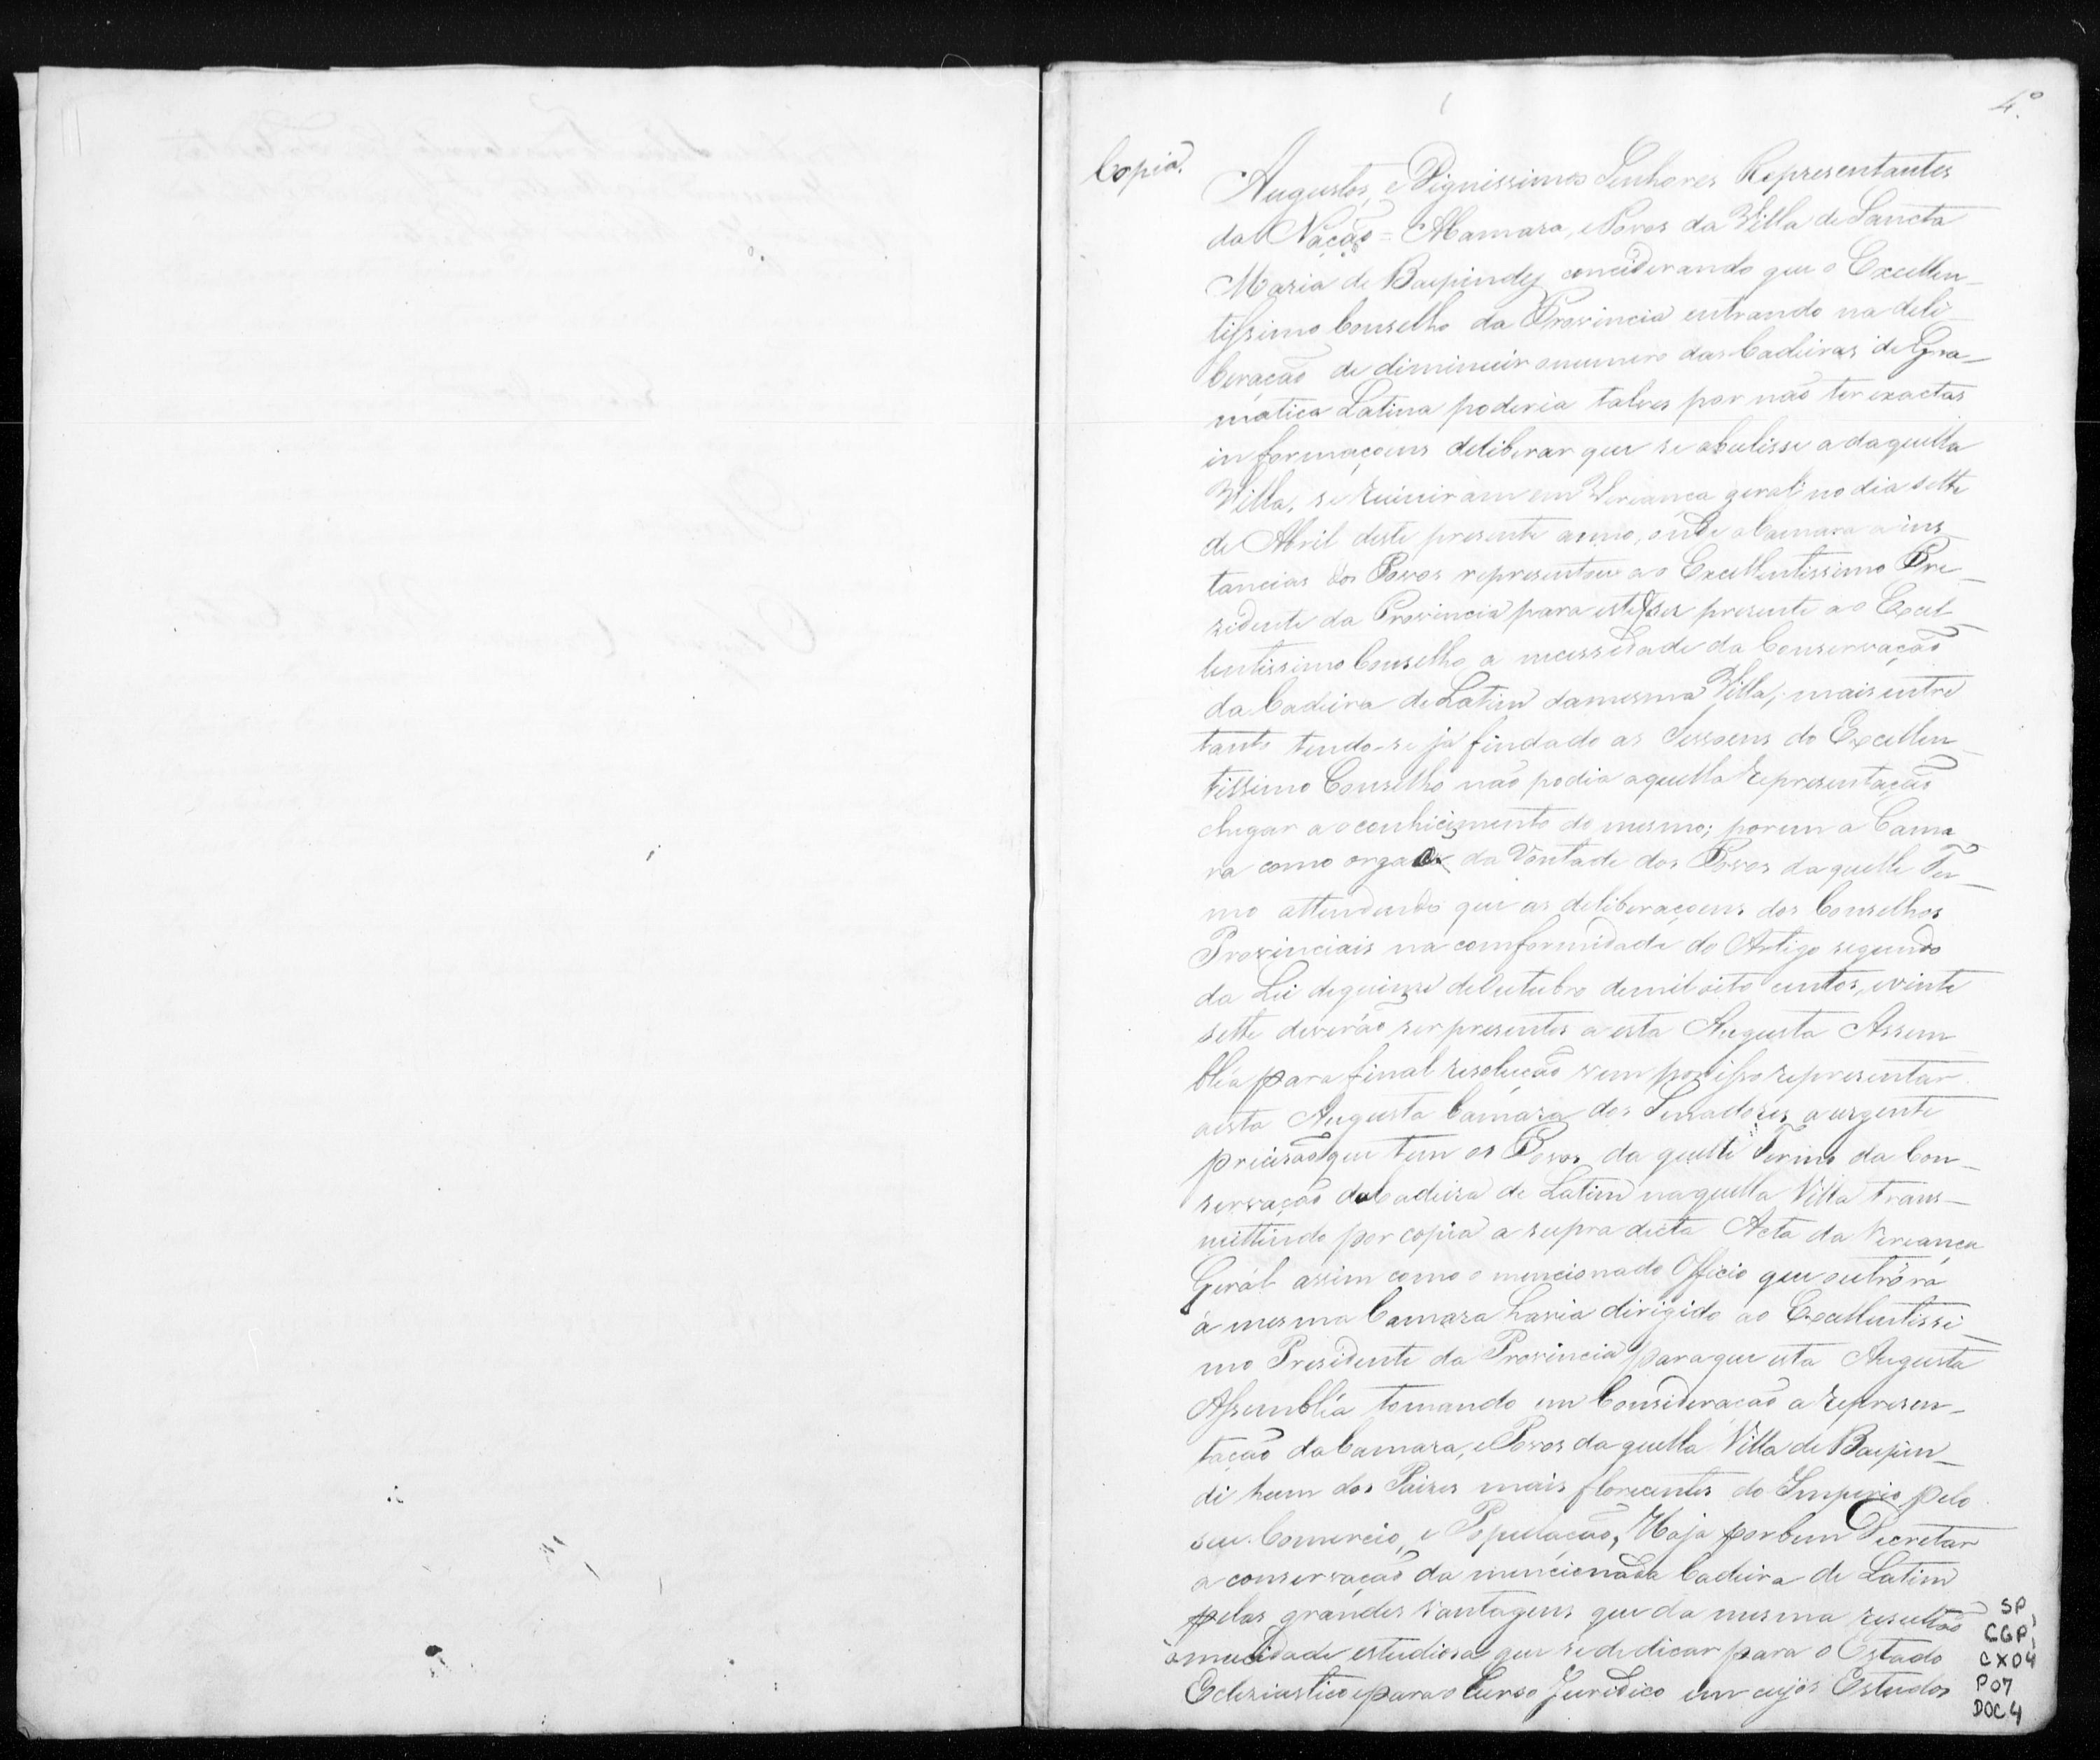 4º
Copia.
Augustos, e Dignissimos Senhores Representantes
da Nação = A Camara, e Povos da Villa de Sancta
Maria de Baependy conciderando que o Excellen_
tissimo Conselho da Provincia entrando na deli_
beração de diminuir o numero das Cadeiras de Gra_
matica Latina poderia talves por não ter exactas
informaçoens deliberar que se abulisse a daquella
Villa, se reuniram em Vereança geral no dia sette
de Abril deste presente anno, onde a Camara a ins_
tancias dos Povos representou ao Excellentissimo Pre_
zidente da Provincia para este fazer presente ao Excel_
lentissimo Conselho a necessidade da Conservação
da Cadeira de Latim da mesma Villa; mais entre
tanto tendo-se já findado as Sessoens do Excellen_
tissimo Conselho não podia aquella representação
chegar ao conhicimento do mesmo; porem a Cama_
ra como orgao da Vontade dos Povos daquelle Ter_
mo attendendo que as deliberaçoens dos Conselhos
Provinciais na comformidade do Artigo segundo
da Lei de quinze de Outubro de mil oito centos, e vinte
sette deverão ser presentes a esta Augusta Assem_
bléa para final resolução vem por isso representar
a esta Augusta Camara dos Senadores a urgente
precisão que tem os Povos da quelle Termo da Con_
servação da Cadeira de Latim naquella Villa trans_
mittindo por copia a supra dicta Acta da Vereança
Geral assim como o mencionado Officio que outróra
á mesma Camara havia dirigido ao Excellentissi_
mo Presidente da Provincia para que esta Augusta
Assembléa tomando em Consideração a represen_
tação da Camara, e Povos da quella Villa de Baepen_
di hum dos Paizes mais florecentes do Imperio pelo
seu Comercio, e População, Haja por bem Decretar
a conservação da mencionada Cadeira de Latim
pelas grandes vantagens que da mesma resultão
á mucidade estudiosa que se dedicar para o Estado
Eclesiastico e para o Curso Juridico em cujos Estudos
SP
CGP,
CX04,
P07
DOC 4